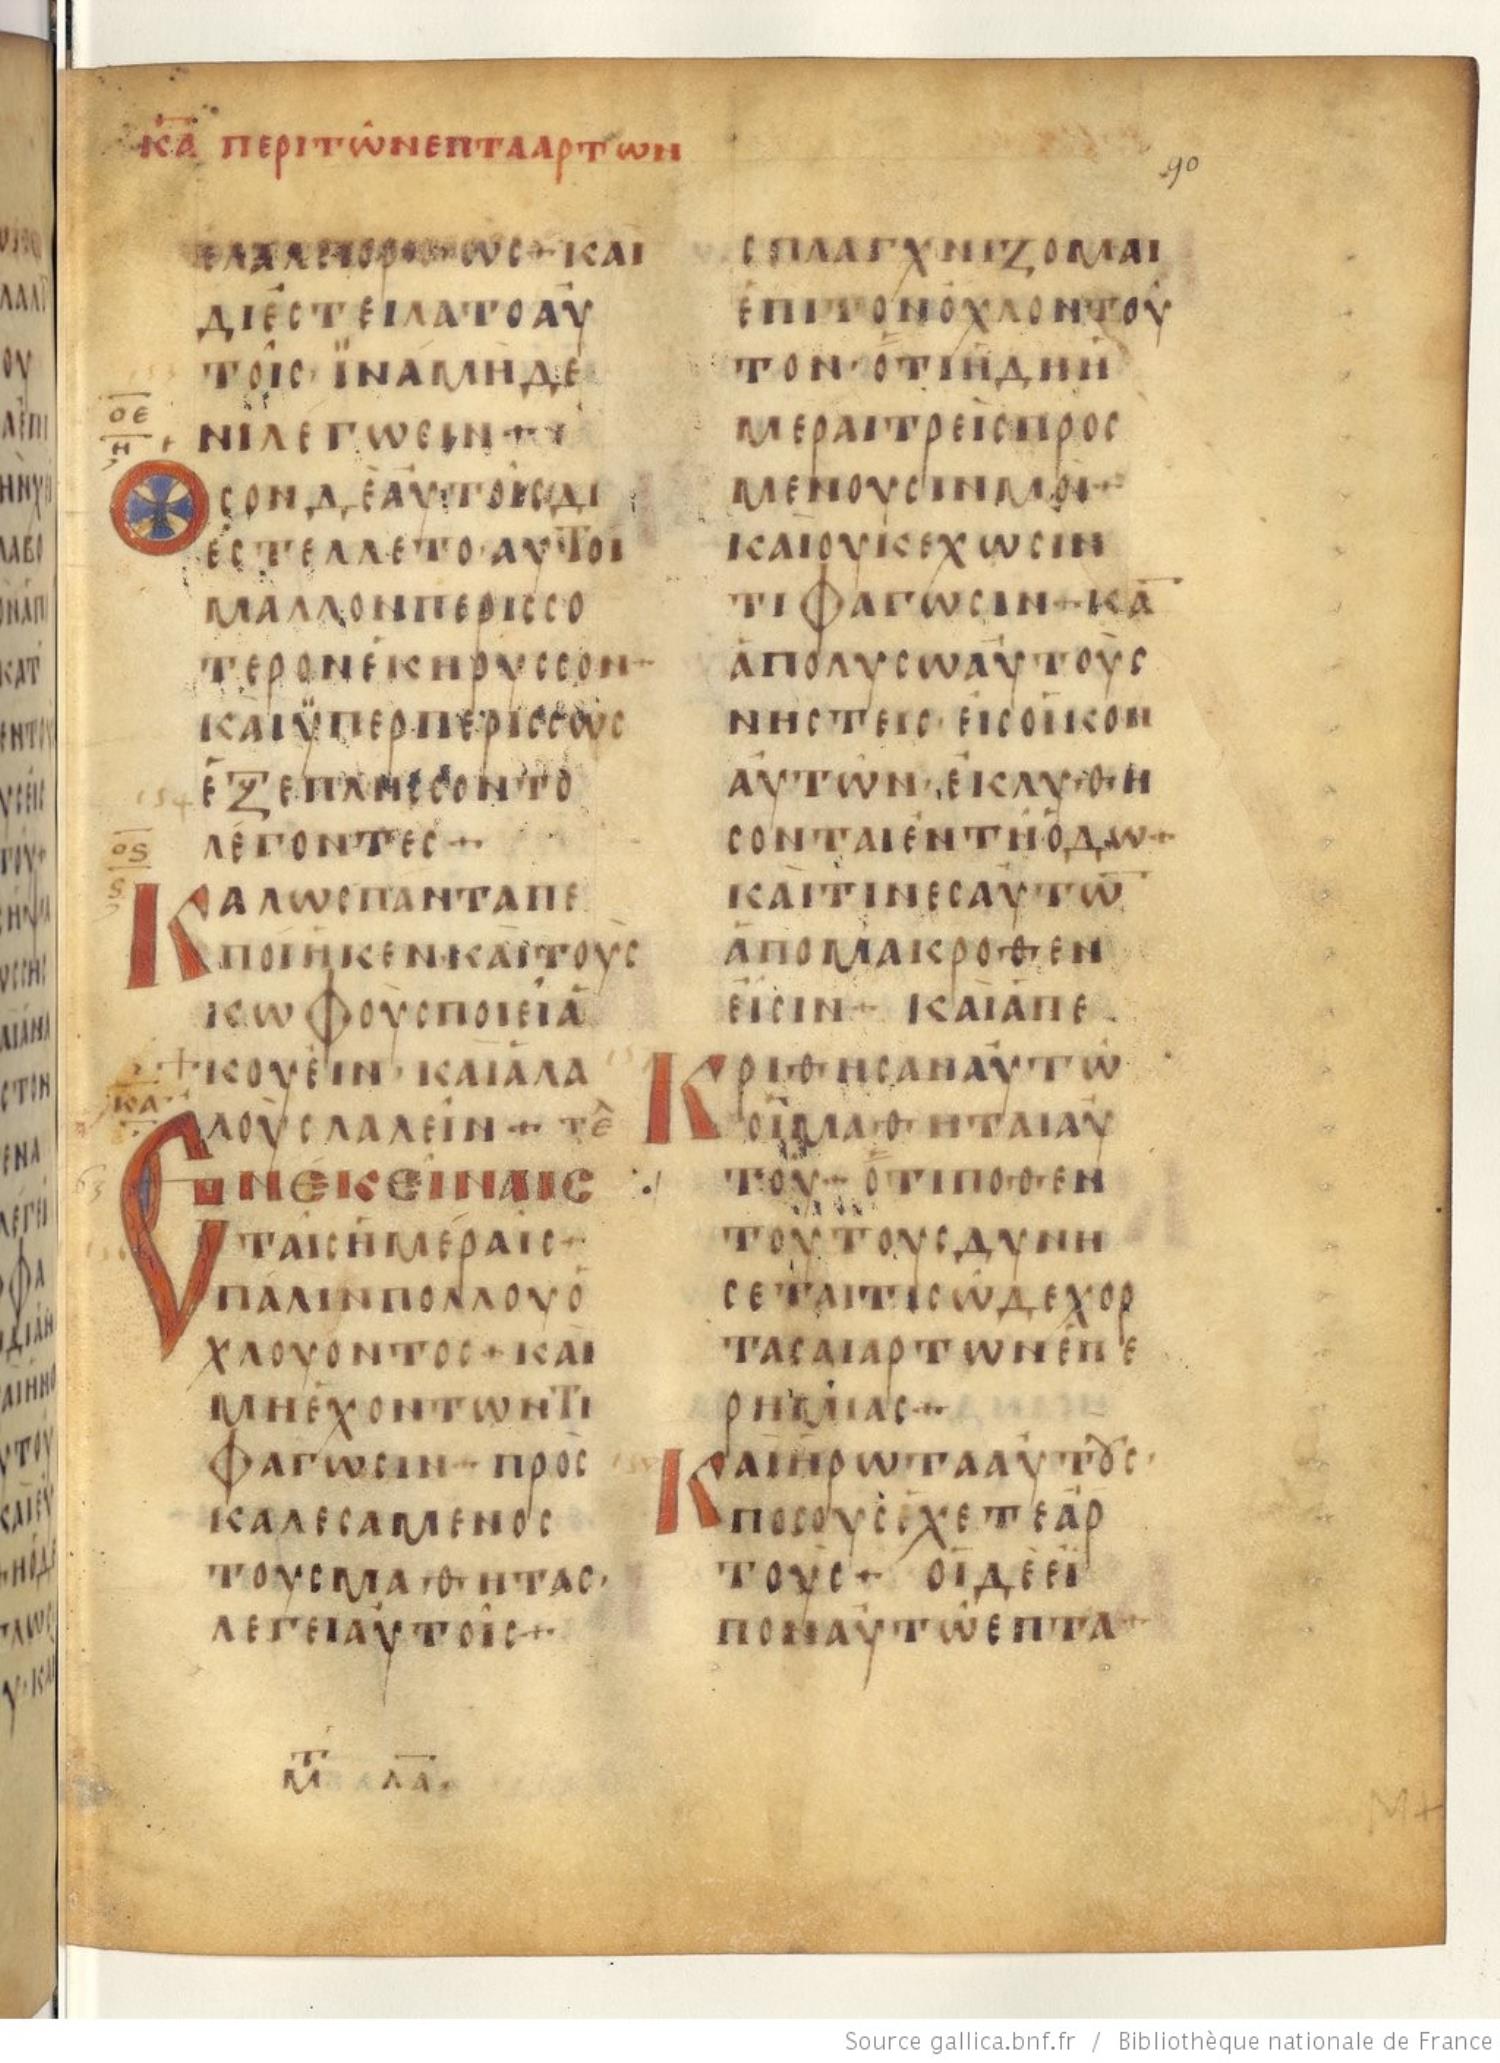 ΚΑ ΠΕΡΙΤΩΝΕΠΤΑΑΡΤΩΝ
90
ΕΛΑΛΕΙΟΡΘΩΣ+ΚΑΙ
ΔΙΕϹΤΕΙΛΑΤΟΑΥ
ΤΟΙϹ·ΪΝΑΜΗΔΕ
ΝΙΛΕΓΩϹΙΝ+
ΟΕ
Η
ΟϹΟΝΔΕΑΥΤΟΙϹΔΙ
ΕϹΤΕΛΛΕΤΟ·ΑΥΤΟΙ
ΜΑΛΛΟΝΠΕΡΙϹϹΟ
ΤΕΡΟΝΕΚΗΡΥϹϹΟΝ+
ΚΑΙΫΠΕΡΠΕΡΙϹϹΩϹ
ΕΞΕΠΛΗϹϹΟΝΤΟ
ΛΕΓΟΝΤΕϹ+
Ος
ς
ΚΑΛΩϹΠΑΝΤΑΠΕ
ΠΟΙΗΚΕΝ·ΚΑΙΤΟΥϹ
ΚΩΦΟΥϹΠΟΙΕΙΑ
ΚΟΥΕΙΝ·ΚΑΙΑΛΑ
ΛΟΥϹΛΑΛΕΙΝ+ ΤΕ
ΚΑ
ΕΝΕΚΕΙΝΑΙϹ
ΤΑΙϹΗΜΕΡΑΙϹ+
ΠΑΛΙΝΠΟΛΛΟΥΟ
ΧΛΟΥΟΝΤΟϹ+ΚΑΙ
ΜΗΕΧΟΝΤΩΝΤΙ
ΦΑΓΩϹΙΝ+ΠΡΟϹ
ΚΑΛΕϹΑΜΕΝΟϹ
ΤΟΥϹΜΑΘΗΤΑϹ·
ΛΕΓΕΙΑΥΤΟΙϹ+
ϹΠΛΑΓΧΝΙΖΟΜΑΙ
ΕΠΙΤΟΝΟΧΛΟΝΤΟΥ
ΤΟΝ·ΟΤΙΗΔΗΗ
ΜΕΡΑΙΤΡΕΙϹΠΡΟϹ
ΜΕΝΟΥϹΙΝΜΟΙ+
ΚΑΙΟΥΚΕΧΩϹΙΝ
ΤΙΦΑΓΩϹΙΝ+ΚΑ
ΑΠΟΛΥϹΩΑΥΤΟΥϹ
ΝΗϹΤΕΙϹ·ΕΙϹΟΙΚΟΝ
ΑΥΤΩΝ·ΕΚΛΥΘΗ
ϹΟΝΤΑΙΕΝΤΗΟΔΩ+
ΚΑΙΤΙΝΕϹΑΥΤΩ̅
ΑΠΟΜΑΚΡΟΘΕΝ
ΕΙϹΙΝ+ ΚΑΙΑΠΕ
ΚΡΙΘΗϹΑΝΑΥΤΩ
ΟΙΜΑΘΗΤΑΙΑΥ
ΤΟΥ+ΟΤΙΠΟΘΕΝ
ΤΟΥΤΟΥϹΔΥΝΗ
ϹΕΤΑΙΤΙϹΩΔΕΧΟΡ
ΤΑϹΑΙΑΡΤΩΝΕΠΕ
ΡΗΜΙΑϹ+
ΚΑΙΗΡΩΤΑΑΥΤȣϹ·
ΠΟϹΟΥϹΕΧΕΤΕΑΡ
ΤΟΥϹ+ ΟΙΔΕΕΙ
ΠΟΝΑΥΤΩΕΠΤΑ+
Source gallica.bnf.fr / Bibliothèque nationale de France